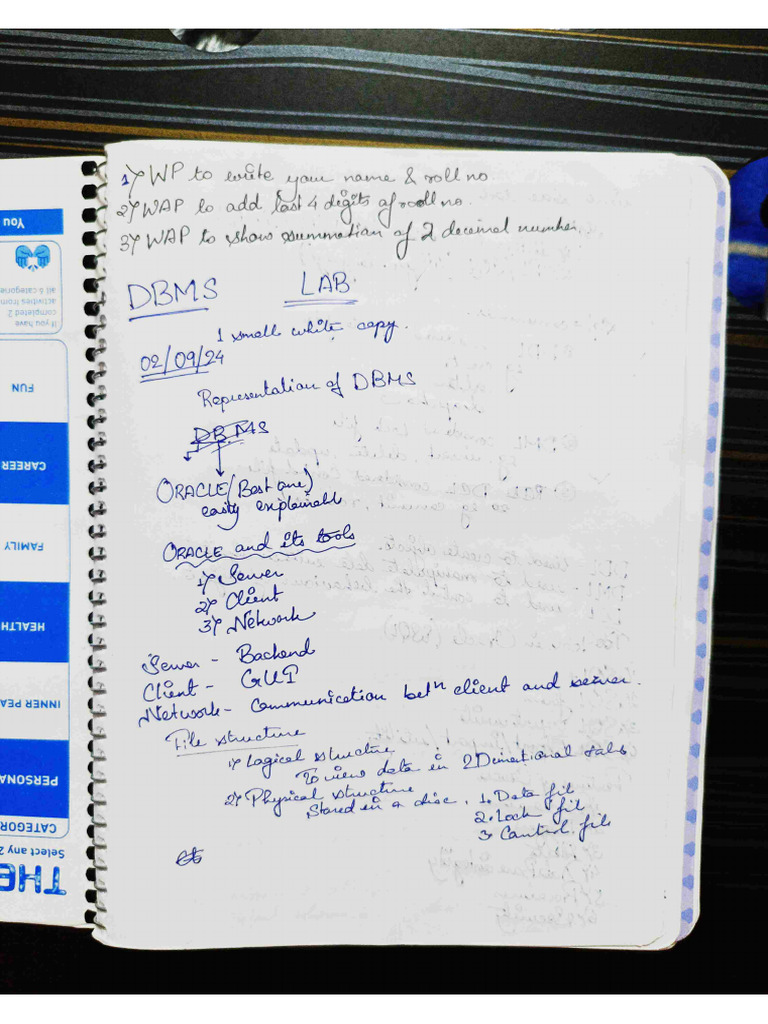 1) WP to write your name & roll no
2) WAP to add last 4 digits of roll no.
3) WAP to show summation of 2 decimal number.
DBMS LAB
1 small white copy.
02/09/24
Representation of DBMS
DBMS
ORACLE (Best one)
easily explainable
ORACLE and its tools
1) Server
2) Client
3) Network
Server - Backend
Client - GUI
Network - Communication betn client and server.
File structure
1) Logical structure
To view data in 2 Dimetional tabs
2) Physical structure
Stored in a disc. 1. Data file
2. Lock file
3. Control file
You
If you have
completed 2
activities from
all 6 categorie
FUN
CAREER
FAMILY
HEALTH
INNER PEA
PERSONA
CATEGOR
Select any 2
THE